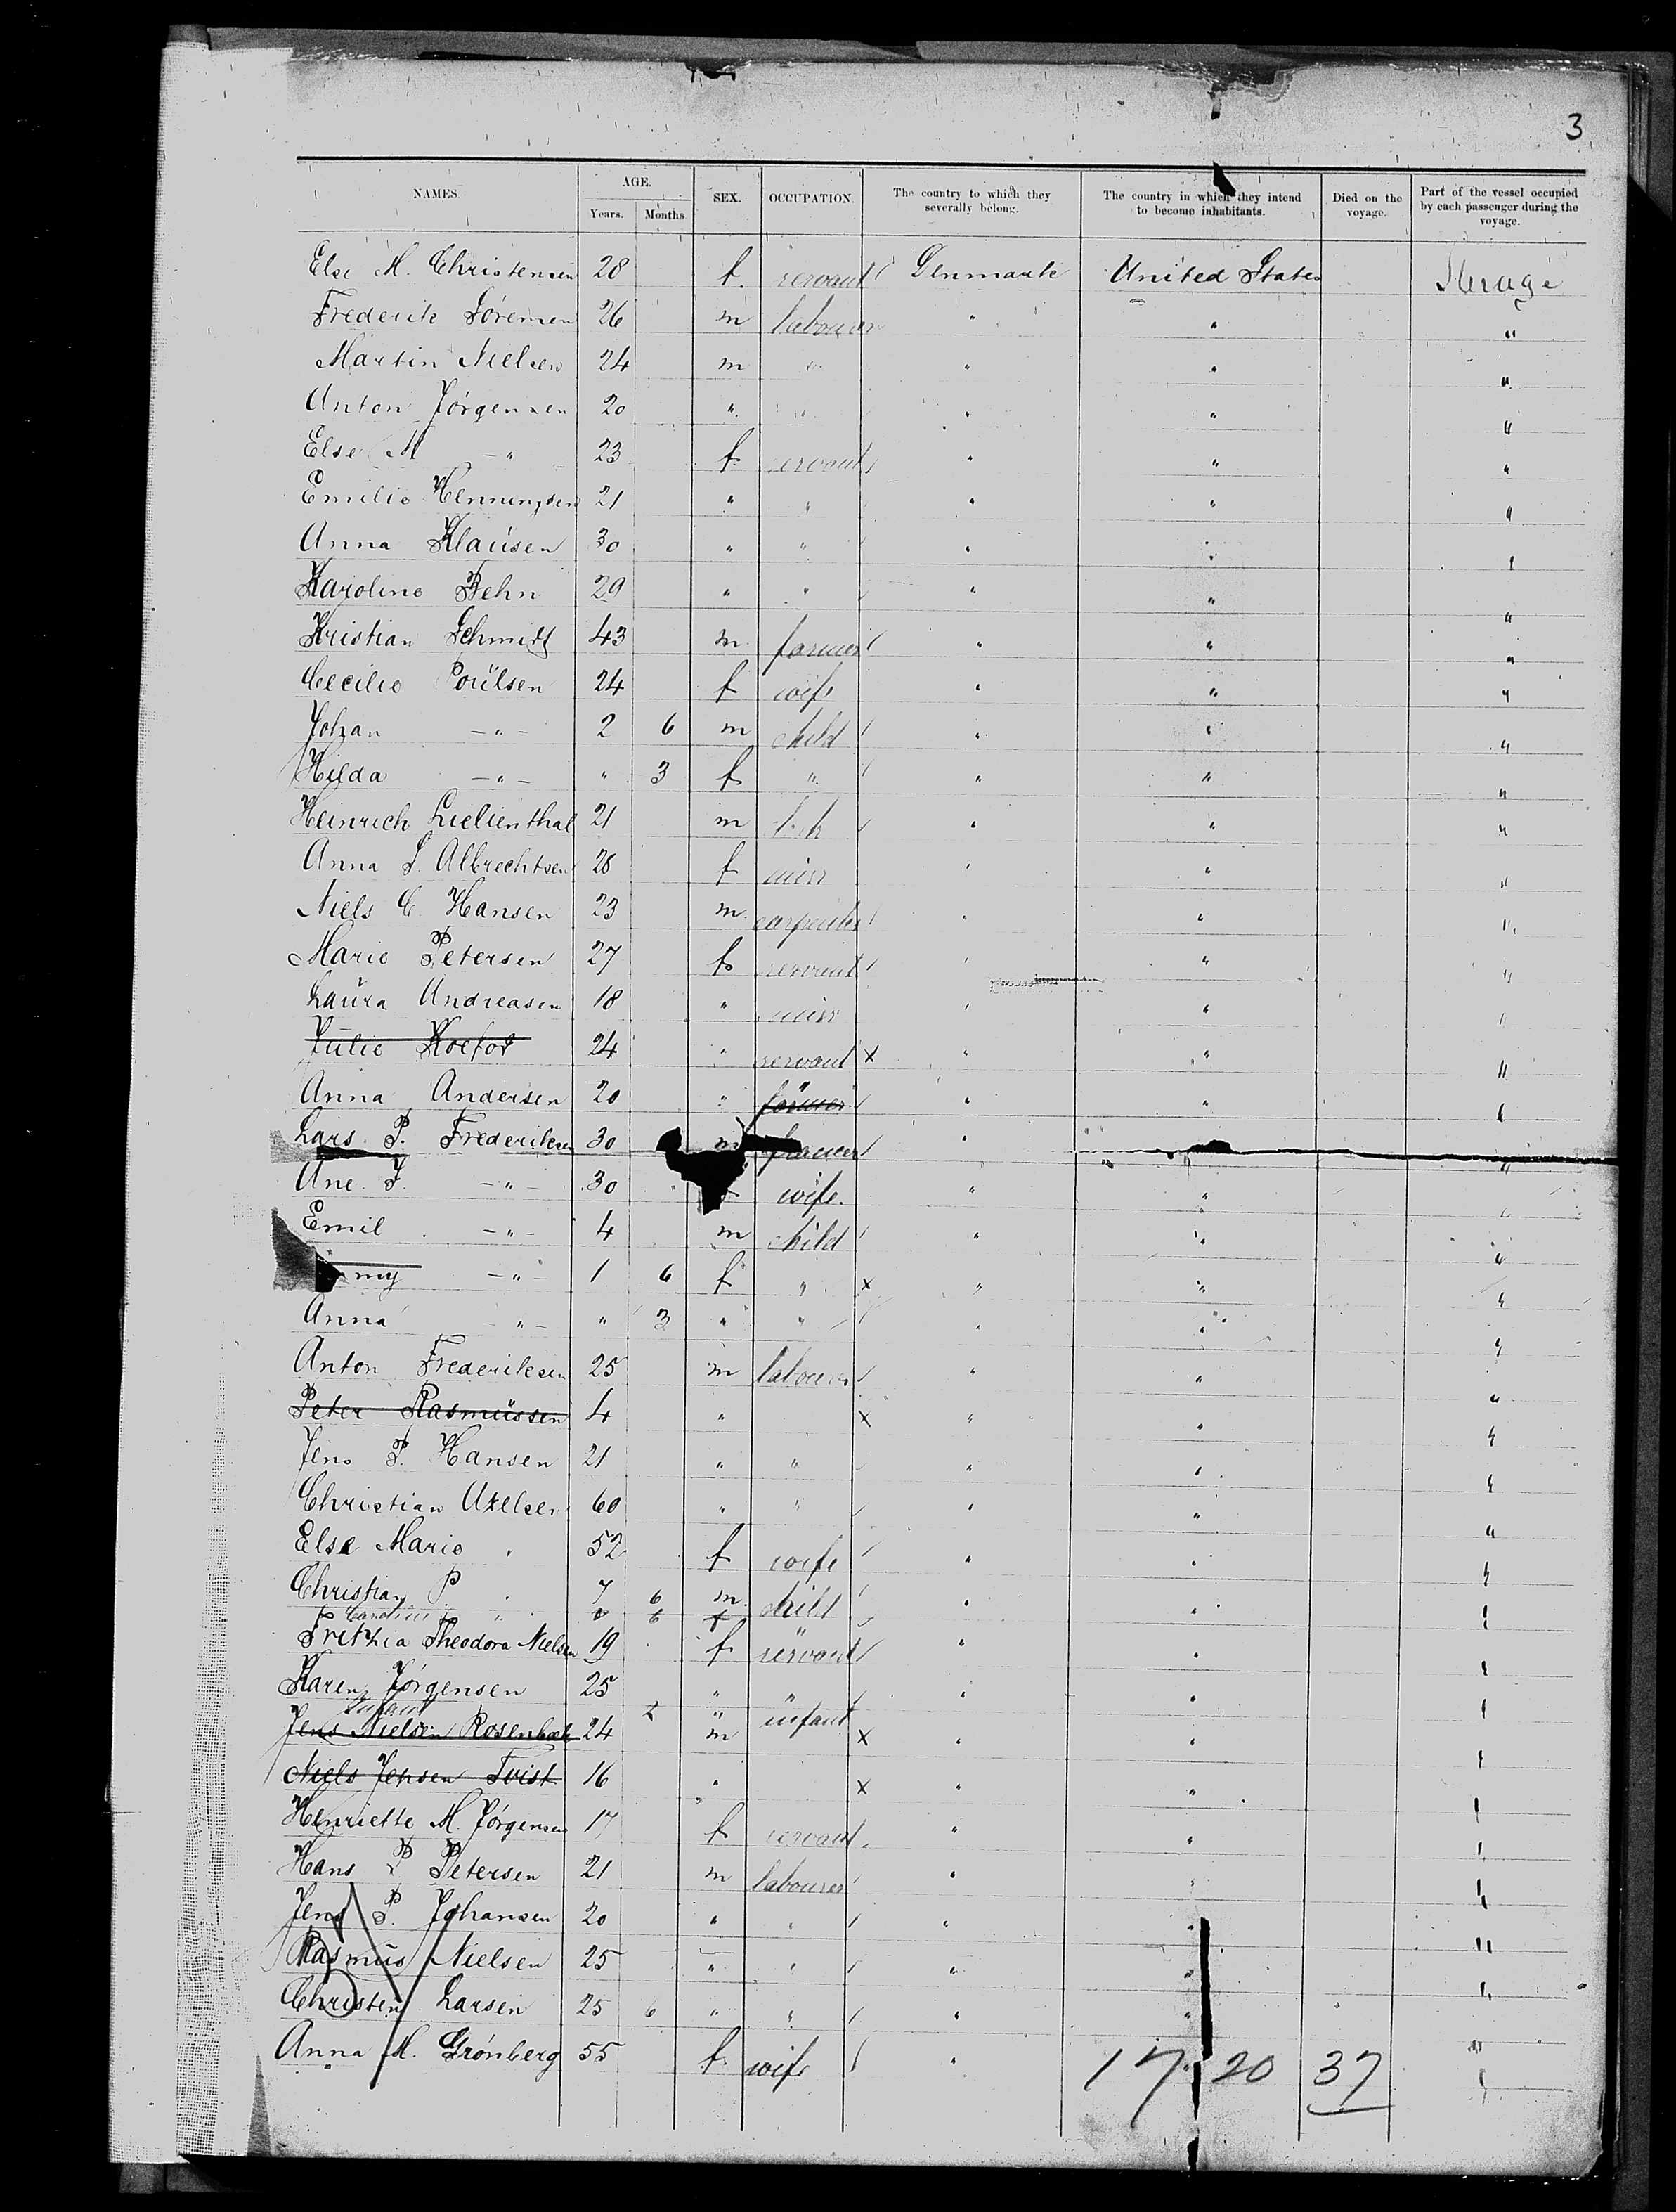 3
NAMES. AGE. Years. Months. SEX. OCCUPATION. The country to which they severally belong. The country in which they intend to become inhabitants. Died on the voyage. Part of the vessel occupied by each passenger during the voyage.
Else M. Christensen 28 f. servant Denmark United States Sterage
Frederik Sörensen 26 m labourer " " "
Martin Nielsen 24 m " " " "
Anton Jörgensen 20 " " " " "
Else M — " 23 f. servant " " "
Emilie Henningsen 21 " " " " "
Anna Klaüsen 30 " " " " "
Karoline Behn 29 " " " " "
Kristian Schmidt 43 m farmer " " "
Cecilie Poülsen 24 f wife " " "
Johan — " — 2 6 m child " " "
Hilda — " — " 3 f " " " "
Heinrich Lielienthal 21 m " " "
Anna S. Albrechtsen 28 f miss " " "
Niels C. Hansen 23 m. carpenter " " "
Marie Petersen 27 f servant " " "
Laüra Andreasen 18 " miss " " "
Jülie Koefod 24 " servant x " " "
Anna Andersen 20 " farmer " " "
Lars P. Frederiksen 30 m farmer " "
Ane F. — " — 30 wife. " " "
Emil — " — 4 m child " " "
my — " — 1 6 f " x " " "
Anna — " — " 3 " " " " "
Anton Frederiksen 25 m labourer " " "
Peter Rasmüssen 4 " x " " "
Jens P. Hansen 21 " " " " "
Christian Axelsen 60 " " " " "
Else Marie " 52 f wife " " "
Christian P. " 7 6 m. child " " "
Caroline " 6 f
Frithia Theodora Nielsen 19 f servant " " "
Karen Jörgensen 25 " " " " "
Infant 2 " infant
Jens Nielsen Rosenbæk 24 m x " " "
Niels Jepsen Tvist 16 " x " " "
Henriette M. Jörgensen 17 f servant " " "
Hans P Petersen 21 m labourer " " "
Jens P. Johansen 20 " " " " "
Rasmüs Nielsen 25 " " " " "
Christen Larsen 25 6 " " " " "
Anna M. Grönberg 55 f. wife " "
17 20 37